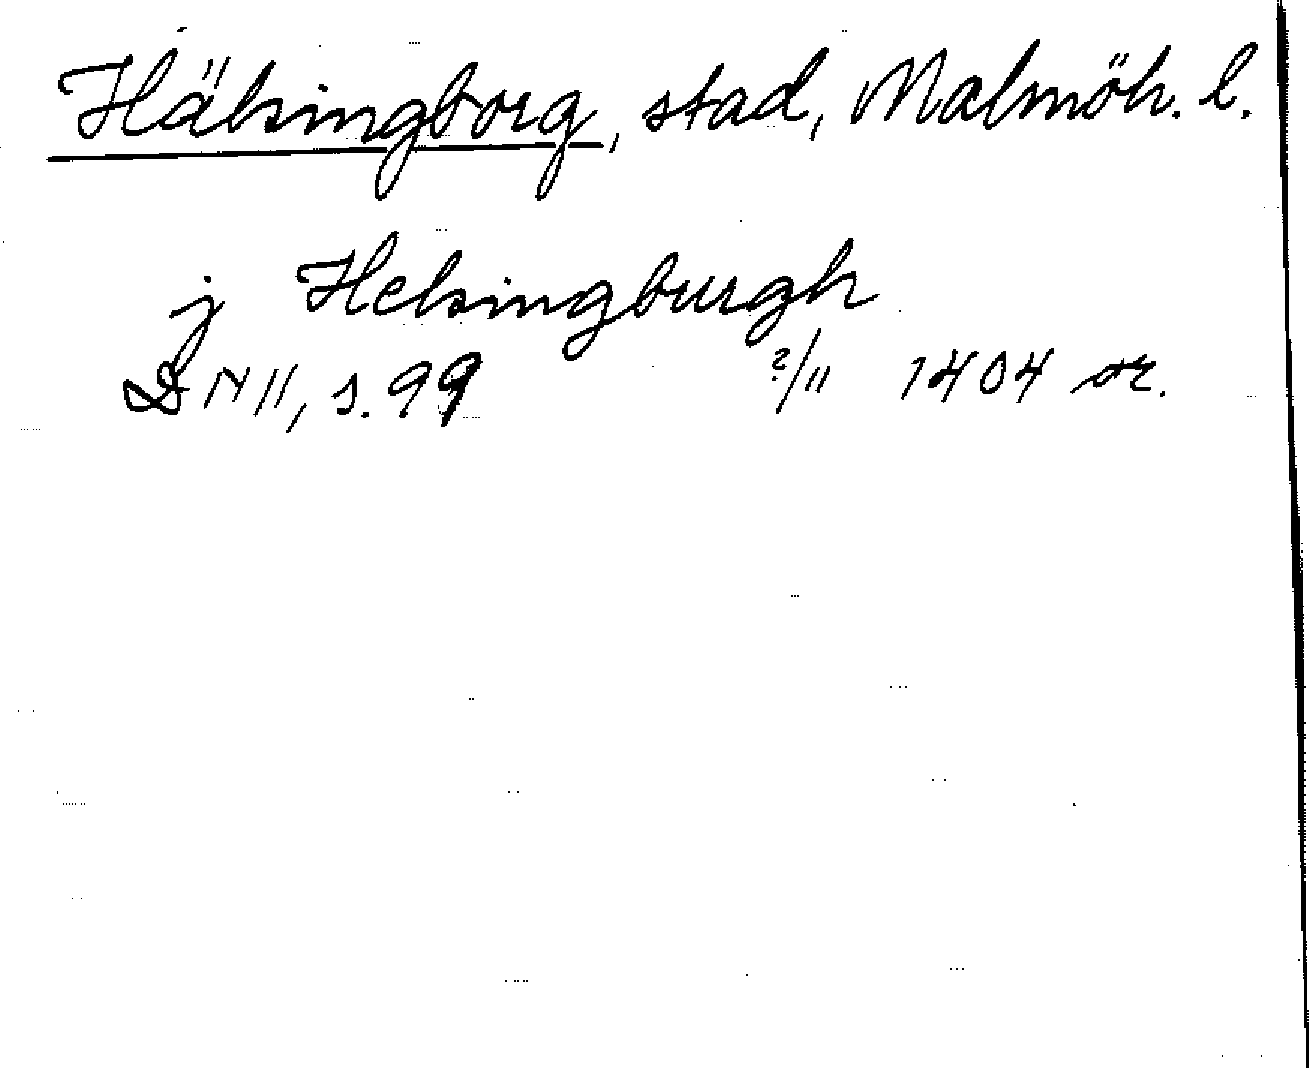 Hälsingborg, stad, Malmöh. l.
j Helsingburgh
DN II, s. 99 ?/11 1404 or.